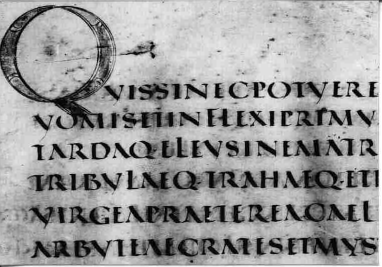 QVISSINECPOTVERE
VOMISETINFLEXIPRIMV
TARDAQ·ELEVSINEMATR
TRIBVLAEQ·TRAHAEQ·ETI
VIRGEAPRAETEREACAEL
ARBVTEAECRATESETMYS